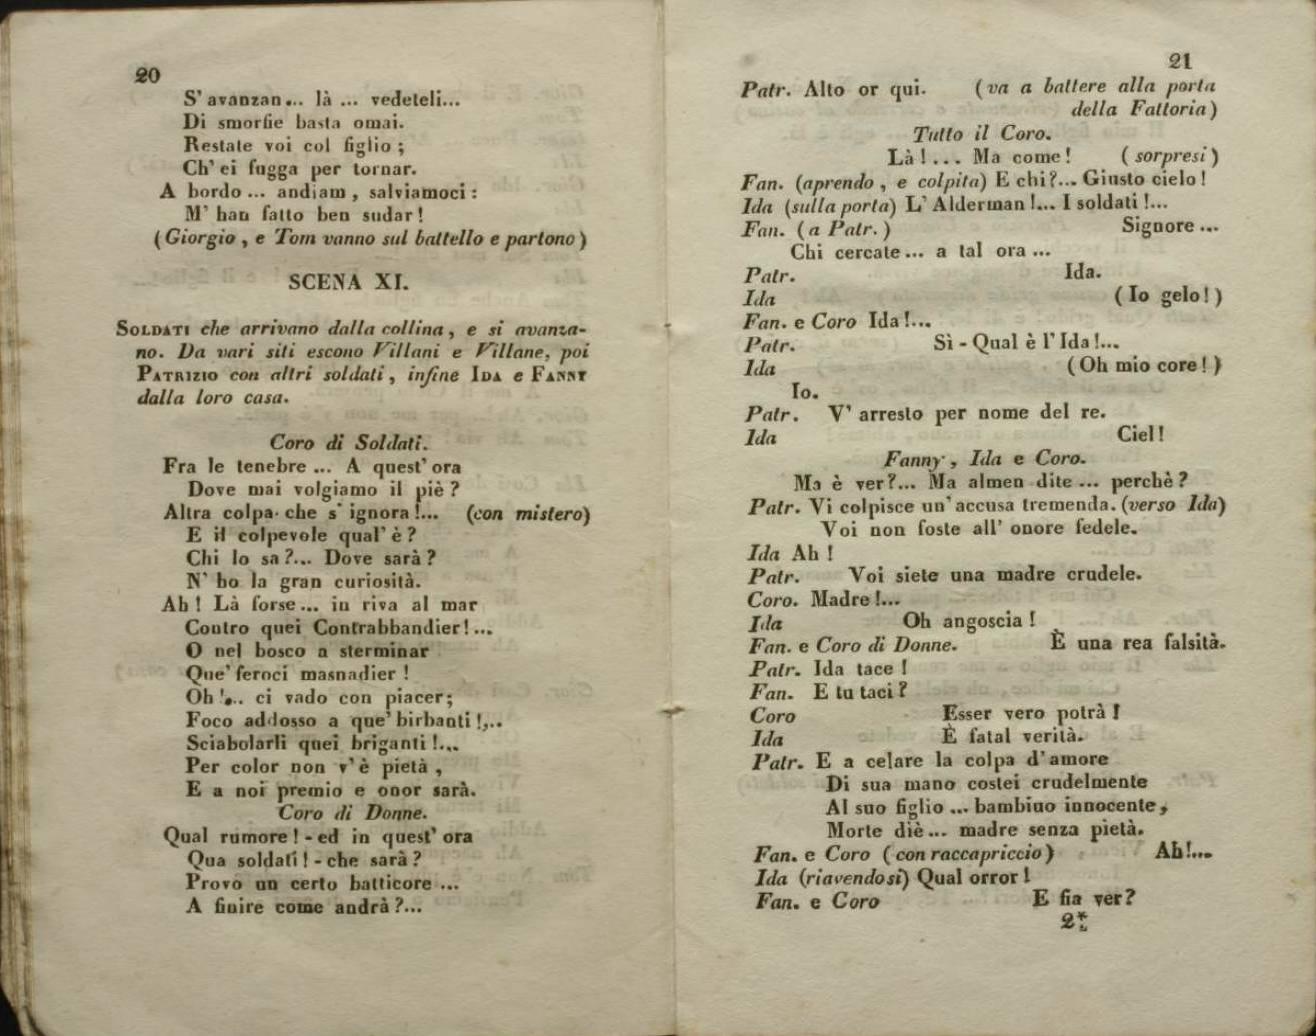 20
S' avanzan... là ... vedeteli...
Di smorfie basta omai.
Restate voi col figlio ;
Ch' ei fugga per tornar.
A bordo ... andiam , salviamoci :
M' han fatto ben sudar !
( Giorgio , e Tom vanno sul battello e partono )
SCENA XI.
SOLDATI che arrivano dalla collina , e si avanza-
no. Da vari siti escono Villani e Villane, poi
PATRIZIO con altri soldati , infine IDA e FANNY
dalla loro casa.
Coro di Soldati.
Fra le tenebre ... A quest' ora
Dove mai volgiamo il piè ?
Altra colpa che s' ignora !... (con mistero)
E il colpevole qual' è ?
Chi lo sa ?... Dove sarà ?
N' ho la gran curiosità.
Ah ! Là forse ... in riva al mar
Contro quei Contrabbandier ! ...
O nel bosco a sterminar
Que' feroci masnadier !
Oh !... ci vado con piacer;
Foco addosso a que' birbanti !,..
Sciabolarli quei briganti !...
Per color non v' è pietà ,
E a noi premio e onor sarà.
Coro di Donne.
Qual rumore ! - ed in quest' ora
Qua soldati ! - che sarà ?
Provo un certo batticore ...
A finire come andrà ?...
21
Patr. Alto or qui. ( va a battere alla porta
della Fattoria )
Tutto il Coro.
Là ! ... Ma come ! ( sorpresi )
Fan. (aprendo , e colpita) E chi?... Giusto cielo !
Ida (sulla porta) L' Alderman !... I soldati !...
Fan. ( a Patr. ) Signore ...
Chi cercate ... a tal ora ...
Patr. Ida.
Ida ( Io gelo ! )
Fan. e Coro Ida !...
Patr. Sì - Qual è l' Ida !...
Ida ( Oh mio core ! )
Io.
Patr. V' arresto per nome del re.
Ida Ciel !
Fanny , Ida e Coro.
Ma è ver ?... Ma almen dite ... perchè ?
Patr. Vi colpisce un' accusa tremenda. (verso Ida)
Voi non foste all' onore fedele.
Ida Ah !
Patr. Voi siete una madre crudele.
Coro. Madre !...
Ida Oh angoscia !
Fan. e Coro di Donne. È una rea falsità.
Patr. Ida tace !
Fan. E tu taci ?
Coro Esser vero potrà !
Ida È fatal verità.
Patr. E a celare la colpa d' amore
Di sua mano costei crudelmente
Al suo figlio ... bambino innocente ,
Morte diè ... madre senza pietà.
Fan. e Coro ( con raccapriccio ) Ah !...
Ida (riavendosi) Qual orror !
Fan. e Coro E fia ver ?
2*